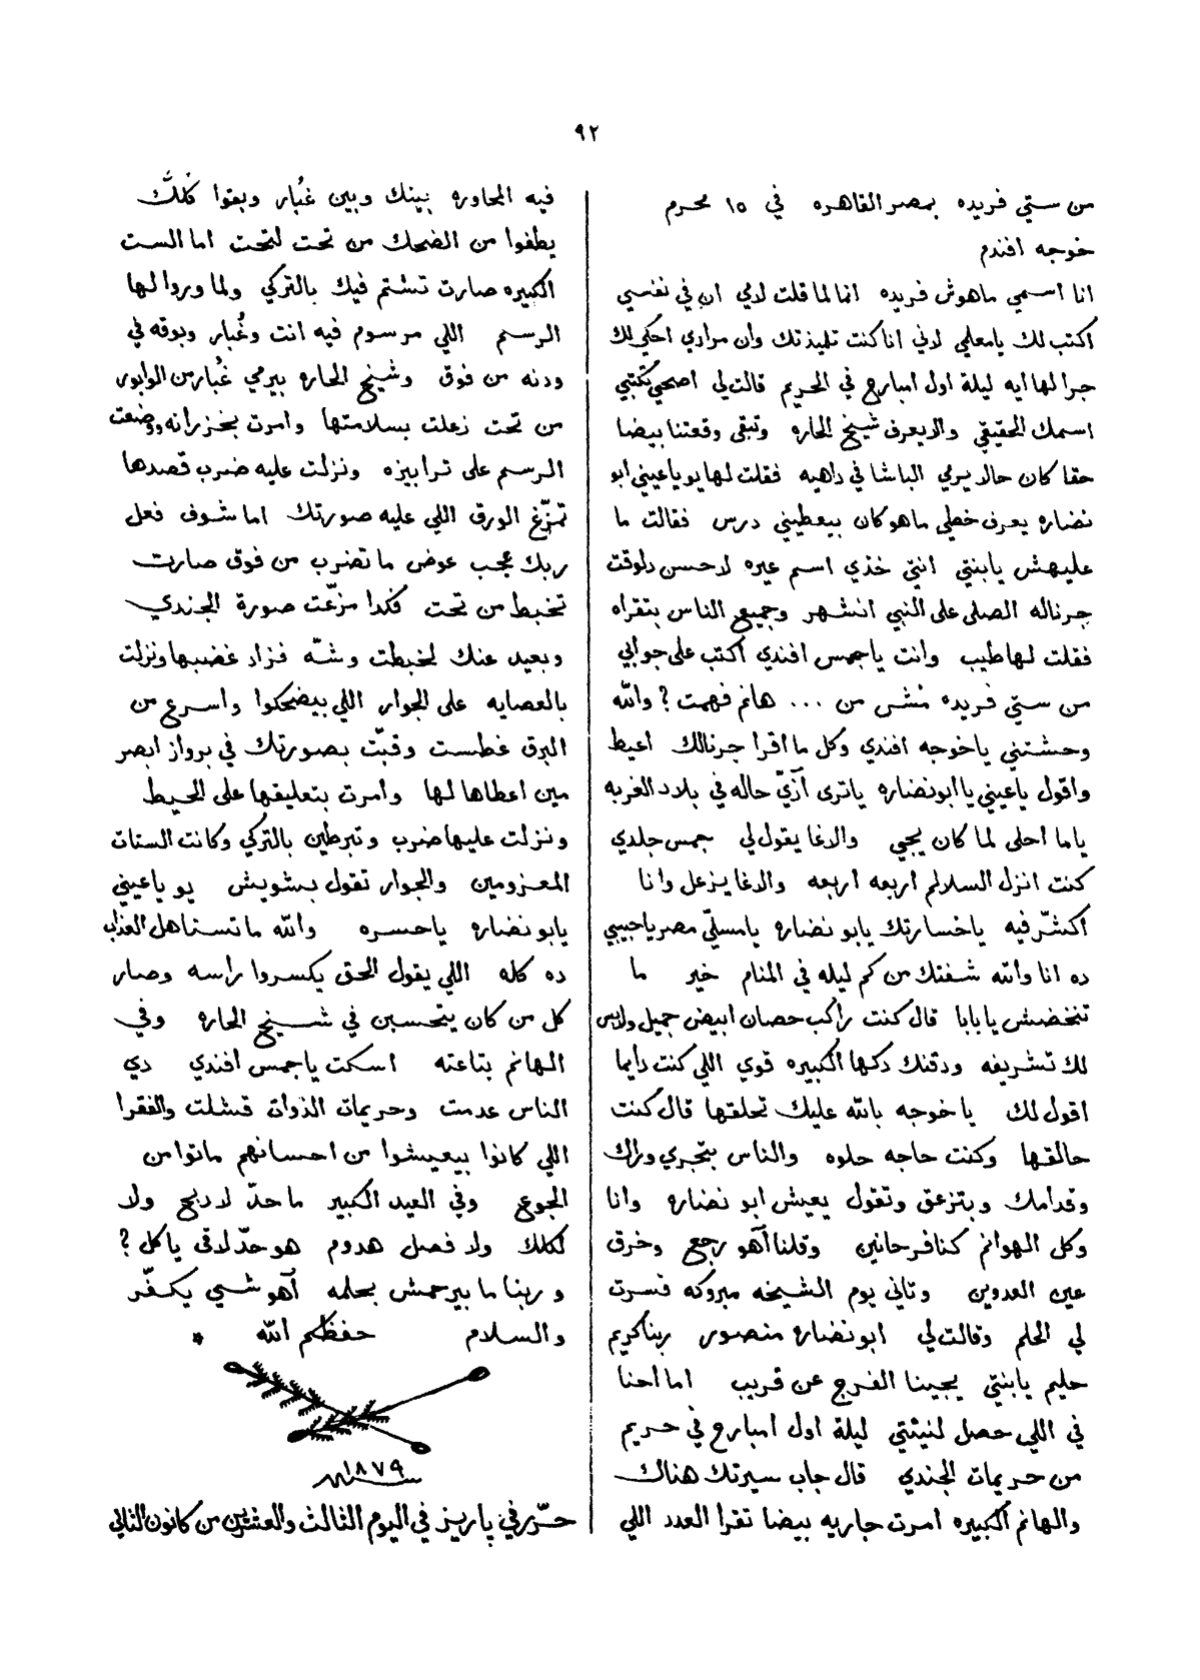 ٩٢
من ستي فريده بمصر القاهره في ١٥ محرم
خوجه افندم
انا اسمي ماهوش فريده انما لما قلت لامي ان في نفسي
اكتب لك يا معلمي لاني انا كنت تلميذتك وان مرادي احكي لك
جرا لها ايه ليلة اول امبارح في الحريم قالت لي اصحي تكتبي
اسمك الحقيقي والا يعرف شيخ الحاره وتبقى وقعتنا بيضا
حقا كان حالا يرمي الباشا في داهيه فقلت لها يو يا عيني ابو
نضاره يعرف خطي ماهو كان بيعطيني درس فقالت ما
عليهش يا بنتي انتي خذي اسم عيره لاحسن دلوقت
جرناله الصلى على النبي انشهر وجميع الناس بتقراه
فقلت لها طيب وانت يا جمس افندي اكتب على جوابي
من ستي فريده مُش من ... هانم فهمت ؟ والله
وحشتني يا خوجه افندي وكل ما اقرا جرنالك اعيط
واقول يا عيني يا ابو نضاره ياترى آزيّ حاله في بلاد الغربه
ياما احلى لما كان يجي والاغا يقول لي جمس جلدي
كنت انزل السلالم اربعه اربعه والاغا يزعل وانا
اكشّر فيه يا خسارتك يا بو نضاره يا مسلّي مصر يا حبيبي
ده انا والله شفتك من كم ليله في المنام خير ما
تنخضش يا بابا قال كنت راكب حصان ابيض جميل ولابس
لك تشريفه ودقنك دكها الكبيره قوي اللي كنت دايما
اقول لك يا خوجه بالله عليك تحلقها قال كنت
حالقها وكنت حاجه حلوه والناس بتجري وراك
وقدامك وبتزعق وتقول يعيش ابو نضاره وانا
وكل الهوانم كنا فرحانين وقلنا آهو رجع وخرق
عين العدوين وتاني يوم الشيخه مبروكه فسرت
لي الحلم وقالت لي ابو نضاره منصور ربنا كريم
حليم يا بنتي يجينا الفرج عن قريب اما احنا
في اللي حصل لنينتي ليلة اول امبارح في حريم
من حريمات الجندي قال جاب سيرتك هناك
والهانم الكبيره امرت جاريه بيضا تقرا العدد اللي
فيه المحاوره بينك وبين غُبار وبقوا كُلّك
يطفوا من الضحك من تحت لتحت اما الست
الكبيره صارت تشتم فيك بالتركي ولما وروا لها
الرسم اللي مرسوم فيه انت وغُبار وبوقه في
ودنه من فوق وشيخ الحاره بيرمي غُبار من الوابور
من تحت زعلت بسلامتها وامرت بخزرانه ووضعت
الرسم على ترابيزه ونزلت عليه ضرب قصدها
تمزّغ الورق اللي عليه صورتك اما شوف فعل
ربك عجب عوض ما تضرب من فوق صارت
تخبط من تحت فكدا مزّعت صورة الجندي
وبعيد عنك لخبطت وشّه فزاد غضبها ونزلت
بالعصايه على الجوار اللي بيضحكوا واسرع من
البرق غطست وقبّت بصورتك في برواز ابصر
مين اعطاها لها وامرت بتعليقها على الحيط
ونزلت عليها ضرب وتبرطين بالتركي وكانت الستات
المعزومين والجوار تقول بشويش يو يا عيني
يا بو نضاره يا حسره والله ما تستاهل العذاب
ده كله اللي يقول الحق يكسروا راسه وصار
كل من كان يتحسبن في شيخ الحاره وفي
الهانم بتاعته اسكت يا جمس افندي دي
الناس عدمت وحريمات الذوات قشلت والفقرا
اللي كانوا بيعيشوا من احسانهم ماتوا من
الجوع وفي العيد الكبير ما حدّ لا دبح ولا
لكلك ولا فصل هدوم هو حدّ لاقى ياكل ؟
وربنا ما بيرحمش بحلمه آهو شي يكفّر
والسلام حفظكم الله *
١٨٧٩
سنة
حرّر في پاريز في اليوم الثالث والعشرين من كانون الثاني